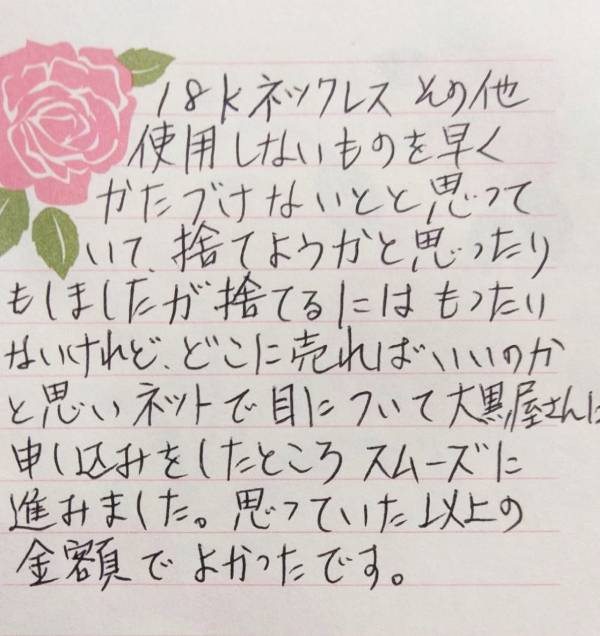 18kネックレス その他
使用しないものを早く
かたづけないとと思って
いて、捨てようかと思ったり
もしましたが捨てるにはもったい
ないけれど、どこに売ればいいのか
と思いネットで目について大黒屋さんに
申し込みをしたところスムーズに
進みました。思っていた以上の
金額でよかったです。